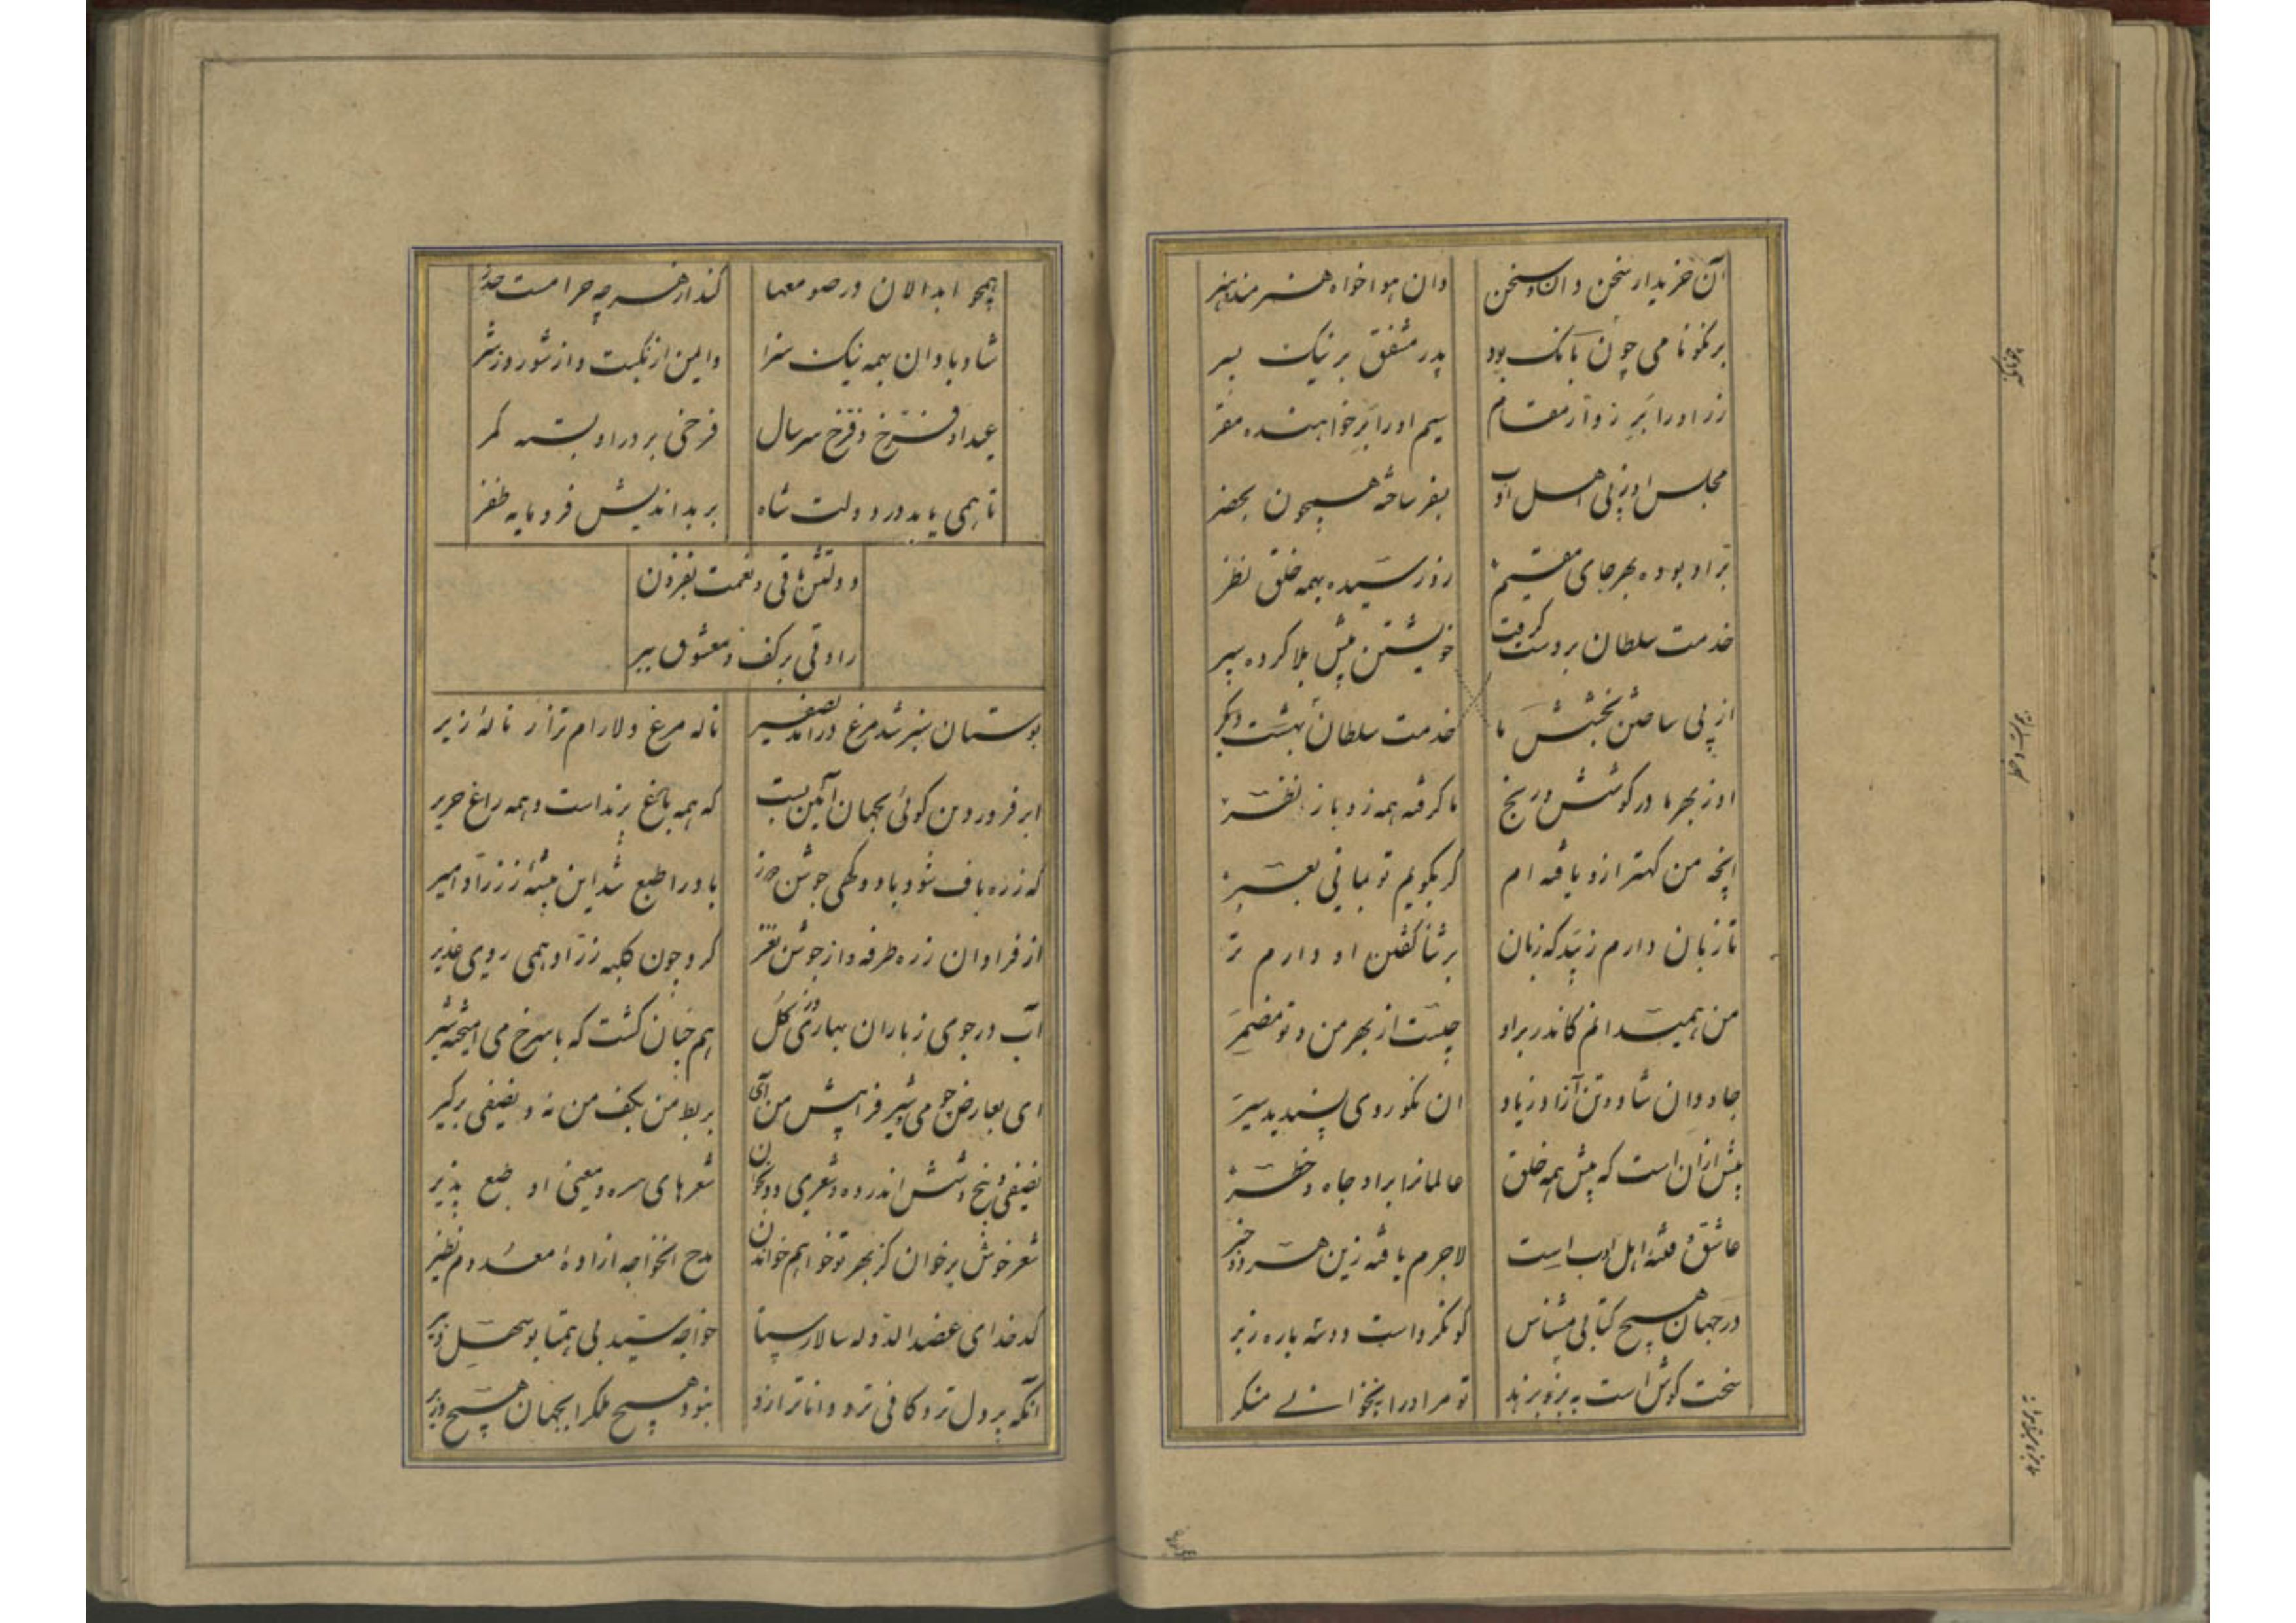 آن خریدار سخن دان و سخن
وان هوا خواه هنرمند هنر
بر نکو نامی چون بانک بود
پدر مشفق بر نیک پسر
زر او را بَرِ زوار مقام
سیم او را بَرِ خواهنده مقر
مجلس او ز پی اهل ادب
بفر ساخته همچون بحضر
بر او بوده بهر جای مقیم
زو رسیده بهمه خلق نظر
خدمت سلطان بر دست گرفت
خویشتن پیش بلا کرده سپر
از پی ساختن بخشش ما
خدمت سلطان بهشت دیگر
او ز بهر ما در کوشش و رنج
ما گرفته همه زو ناز و نظر
انچه من کهتر ازو یافته ام
گر بگویم تو بمانی بعبر
تا زبان دارم زیبد که زبان
بر ثنا گفتن او دارم تر
من همیدانم کاندر بر او
چیست از بهر من و تو مضمر
جاودان شاد و تن آزاد زیاد
ان نکو روی پسندیده سیر
پیش ازان است که پیش همه خلق
عالمانرا بر او جاه و خطر
عاشق و فتنهٔ اهل ادب است
لاجرم یافته زین هر دو خبر
در جهان هیچ کتابی مشناس
کو نکرداست دو سه باره زبر
سخت کوش است به پرهیز و بزهد
تو مر او را بجوانی منگر
همچو ابدالان در صومعها
کند از هر چه حرامست حذر
شاد باد ان بهمه نیک سزا
و ایمن از نکبت و از شور و ز شر
عید او فرخ و فرخ سر سال
فرخی بر در او بسته کمر
تا همی یابد در دولت شاه
بر بداندیش فرومایه ظفر
دولتش باقی و نعمت بفزون
راوقی بر کف و معشوق ببر
بوستان سبز شد و مرغ درامد بصفیر
ناله مرغ دلارام تر از نالهٔ زیر
ابر فروردین گوئی بجهان آئین بست
که همه باغ پرند است و همه راغ حریر
که زره باف شود باد و گهی جوشن دوز
باد را طبع شد این پیشه ز زراد امیر
از فراوان زره طرفه و از جوشن نغز
کرد چون کلبه زراد همی روی غدیر
آب در جوی ز باران بهاری وز گل
هم چنان گشت که با سرخ می امیخته شیر
ای بعارض چو می و شیر فرا پیش من آی
بربط من بکف من نه و نیفی برگیر
نیفی و پنج و شش اندر ده و شعری دو بخوان
شعرهای سره و معنی او طبع پذیر
شعر خوش برخوان کز بهر تو خواهم خواندن
مدح انخواجه ازادهٔ معدوم نظیر
کدخدای عضد الدوله سالار سپاه
خواجه سید بی همتا بوسهل دبیر
آنکه پر دل تر و کافی تر و دانا تر ازو
نبود هیچ ملکرا بجهان هیچ وزیر